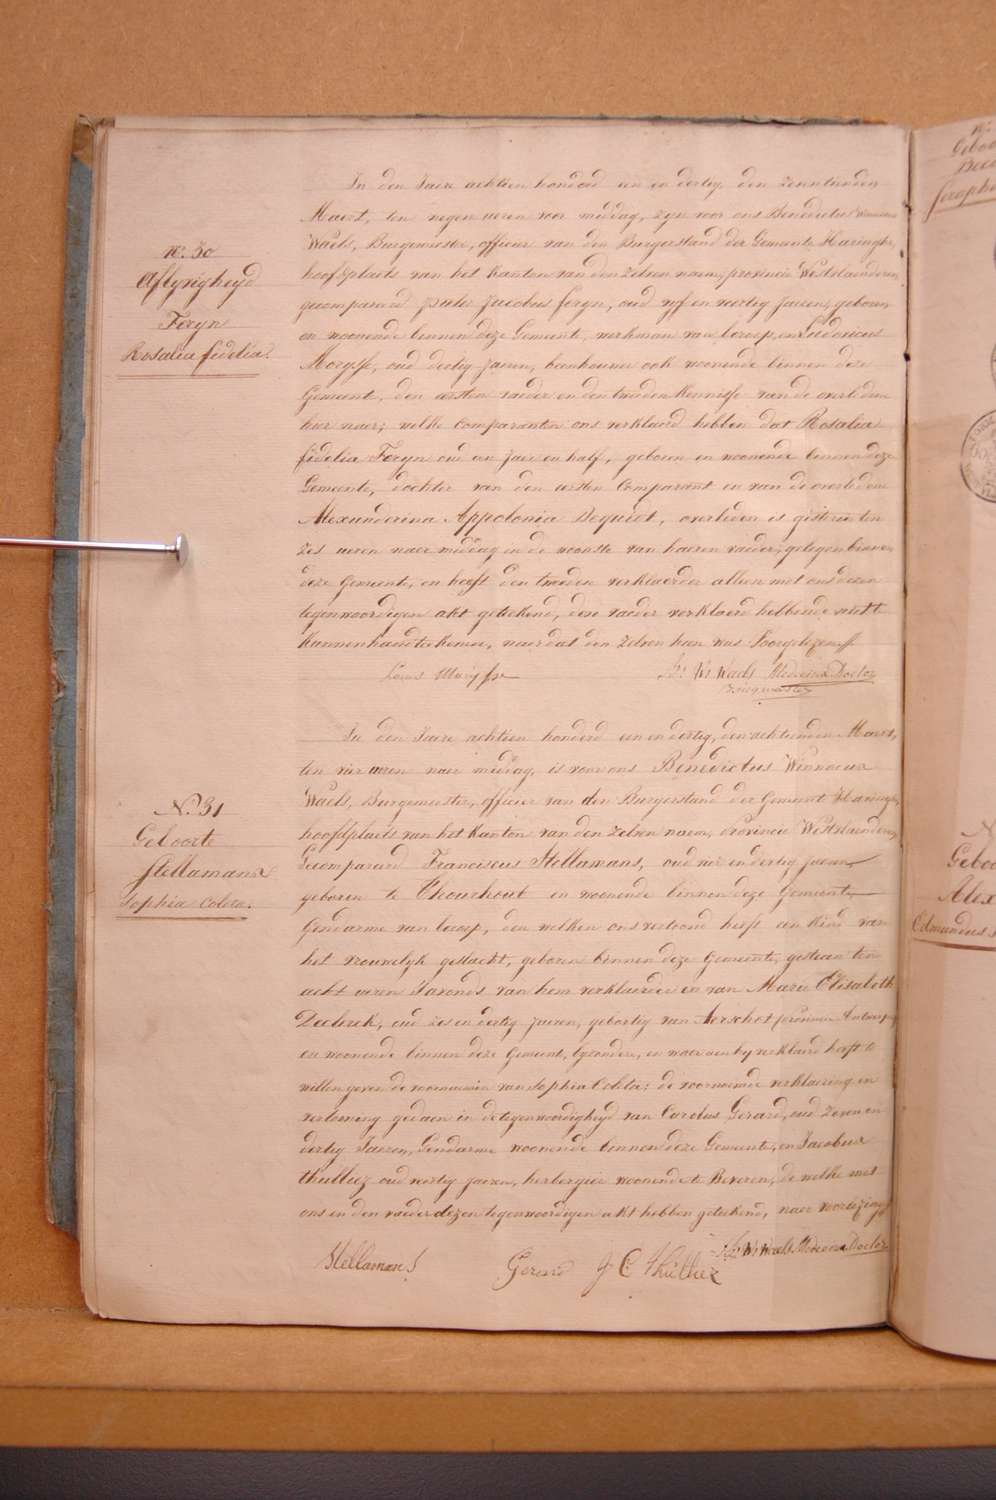 N.° 30
Aflyvigheyd
Feryn
Rosalia fidelia.
In den Jaere achtien honderd een en dertig den
Maert, ten negen ueren voor middag, zyn voor ons Benedictus Winnocus
Waels, Burgemeester, officier van den Burgerstand der Gemeente Haringhe,
hoofdplaets van het Kanton van den zelven naem, provincie Westvlaenderen,
gecompareerd Jacobus feryn, oud vyf en veertig Jaeren, geboren
en woonende binnen deze Gemeente, werkman van beroep, en Ludovicus
oud dertig Jaeren, ook woonende binnen deze
Gemeente, den eersten vaeder en den tweeden Kennisse van de overledene
hier naer; welke comparanten ons verklaerd hebben dat Rosalia
fidelia Feryn oud een Jaer en half, geboren en woonende binnen deze
Gemeente, dochter van den eersten Comparant en van de overledene
Alexanderina Appolonia Dequidt, overleden is gisteren ten
zes ueren naer middag in de woonste van haeren vaeder, gelegen binnen
deze Gemeente, en heeft den tweeden verklaerder alleen met ons dezen
tegenwoordigen akt geteekend, den vaeder verklaerd hebbende niet te
Kunnen handteekenen, naer dat den zelven hun was Voorgelezen
Louis
W. Waels Medecinæ Doctor
Burgmeester
N.° 31
Geboorte
Stellamans
Sophia Coleta.
In den Jaere achtien honderd een en dertig, den achtienden Maert,
ten vier ueren naer middag, is voor ons Benedictus Winnocus
Waels, Burgemeester, officier van den Burgerstand der Gemeente Haringhe,
hoofdplaets van het Kanton van den zelven naem, Provincie Westvlaenderen,
Gecompareerd Franciscus Stellamans, oud vier en dertig Jaeren,
geboren te Thourhout en woonende binnen deze Gemeente
Gendarme van beroep, den welken ons vertoond heeft een Kind van
het vrouwelyk geslacht, geboren binnen deze Gemeente, gisteren ten
acht ueren s'avonds van hem verklaerder en van Marie Elisabeth
Declerck, oud zes en dertig Jaeren, geboortig van Aerschot provincie Antwerpen
en woonende binnen deze Gemeente, byzondere, en waer aen hy verklaerd heeft te
willen geven de voornaemen van Sophia Coleta: de voornoemde verklaering en
vertooning gedaen in de tegenwoordigheyd van Carolus Gerard, oud zeven en
dertig Jaeren, Gendarme woonende binnen deze Gemeente, en Jacobus
thulliez oud veertig Jaeren, herbergier woonende te Beveren, de welke met
ons en den vaeder dezen tegenwoordigen akt hebben geteekend, naer voorlezing
Stellamans
Gerard
J C Thulliez
W. Waels Medecinæ Doctor
Geboo
Alex
Edmundus